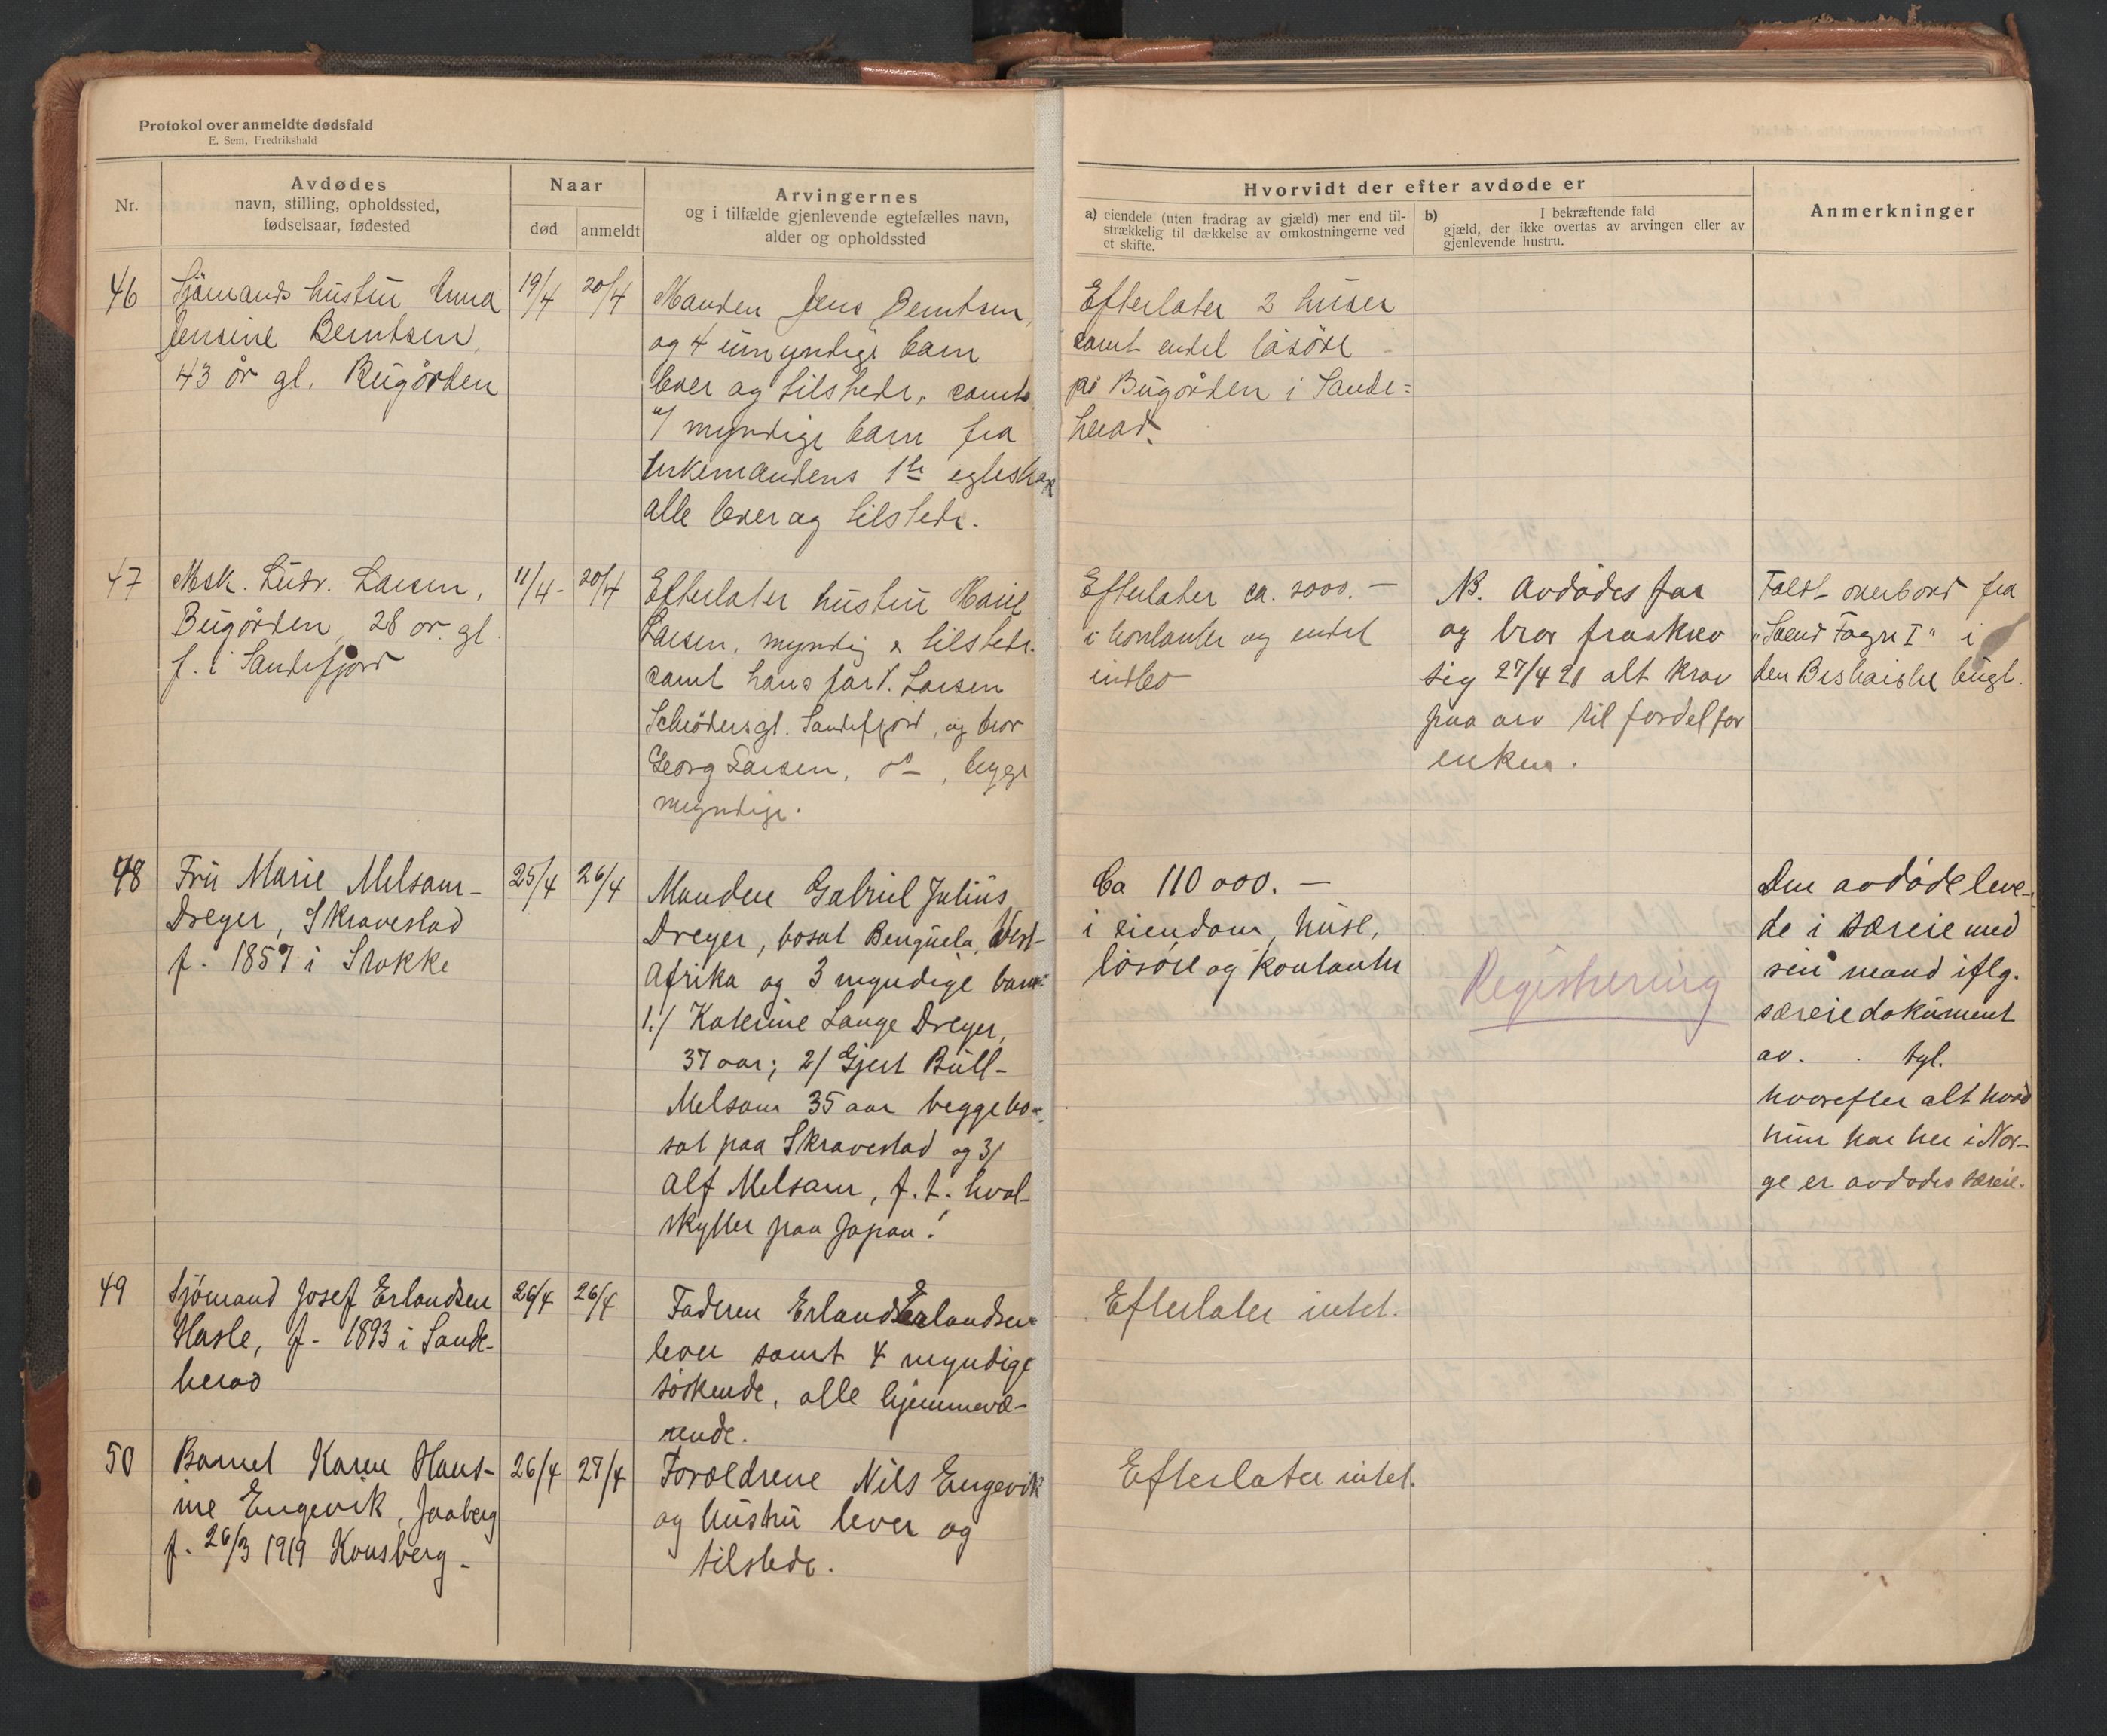 Protokol over anmeldte dødsfald
E. Sem, Fredrikshald
Nr.
Avdødes
navn, stilling, opholdssted,
fødselsaar, fødested
Naar
død
anmeldt
Arvingernes
og i tilfælde gjenlevende egtefælles navn,
alder og opholdssted
Hvorvidt der efter avdøde er
a) eiendele (uten fradrag av gjæld) mer end til-
strækkelig til dækkelse av omkostningerne ved
et skifte.
b) I bekræftende fald
gjæld, der ikke overtas av arvingen eller av
gjenlevende hustru.
Anmerkninger
46
Sjømands hustru Anna
Jensine Berntsen,
43 år gl. Bugården
19/4
20/4
Manden Jens Berntsen,
og 4 umyndige barn
lever og tilstede, samt
myndige barn fra
enkemandens 1ste egteskap
alle lever og tilstede.
Efterlater 2 huser
samt endel løsøre
på Bugården i Sande-
herad.
47
Msk. Ludv. Larsen,
Bugården, 28 år gl.
f. i Sandefjord
11/4 -
20/4
Efterlater hustru Marie
Larsen, myndig & tilstede.
samt hans far L. Larsen
Schrødersgt. Sandefjord, og bror
Georg Larsen, do, begge
myndige.
Efterlater ca. 2000. —
i kontanter og endel
indbo
N. Avdødes far
og bror fraskrev
sig 27/4 21 alt krav
paa arv til fordel for
enken.
Faldt overbord fra
"Svend Foyn I" i
den Biskaiske bugt.
48
Fru Marie Melsom-
Dreyer, Skravestad
f. 1857 i Stokke
25/4
26/4
Manden Gabriel Julius
Dreyer, bosat Benguela, Vest-
Afrika og 3 myndige barn:
1./ Katerine Lange Dreyer,
37 aar; 2/ Gjert Bull-
Melsom 35 aar begge bo-
sat paa Skravestad og 3/
Alf Melsom, f. t. hval-
skytter paa Japan!
Ca 110 000. —
i eiendom, huse,
løsøre og kontanter
Registrering
Den avdøde leve-
de i særeie med
sin mand iflg.
særeiedokument
av. . tgl.
hvorefter alt hvad
hun har her i Nor-
ge er avdødes særeie.
49
Sjömand Josef Erlandsen
Hasle, f. 1893 i Sande-
herad
26/4
26/4
Faderen Erland Erlandsen
lever samt 4 myndige
søskende, alle hjemmevæ-
rende.
Efterlater intet.
50
Barnet Karen Hans-
ine Engevik, Jaaberg
f. 26/3 1919 Konsberg.
26/4
27/4
Forældrene Nils Engevik
og hustru lever og
tilstede.
Efterlater intet.